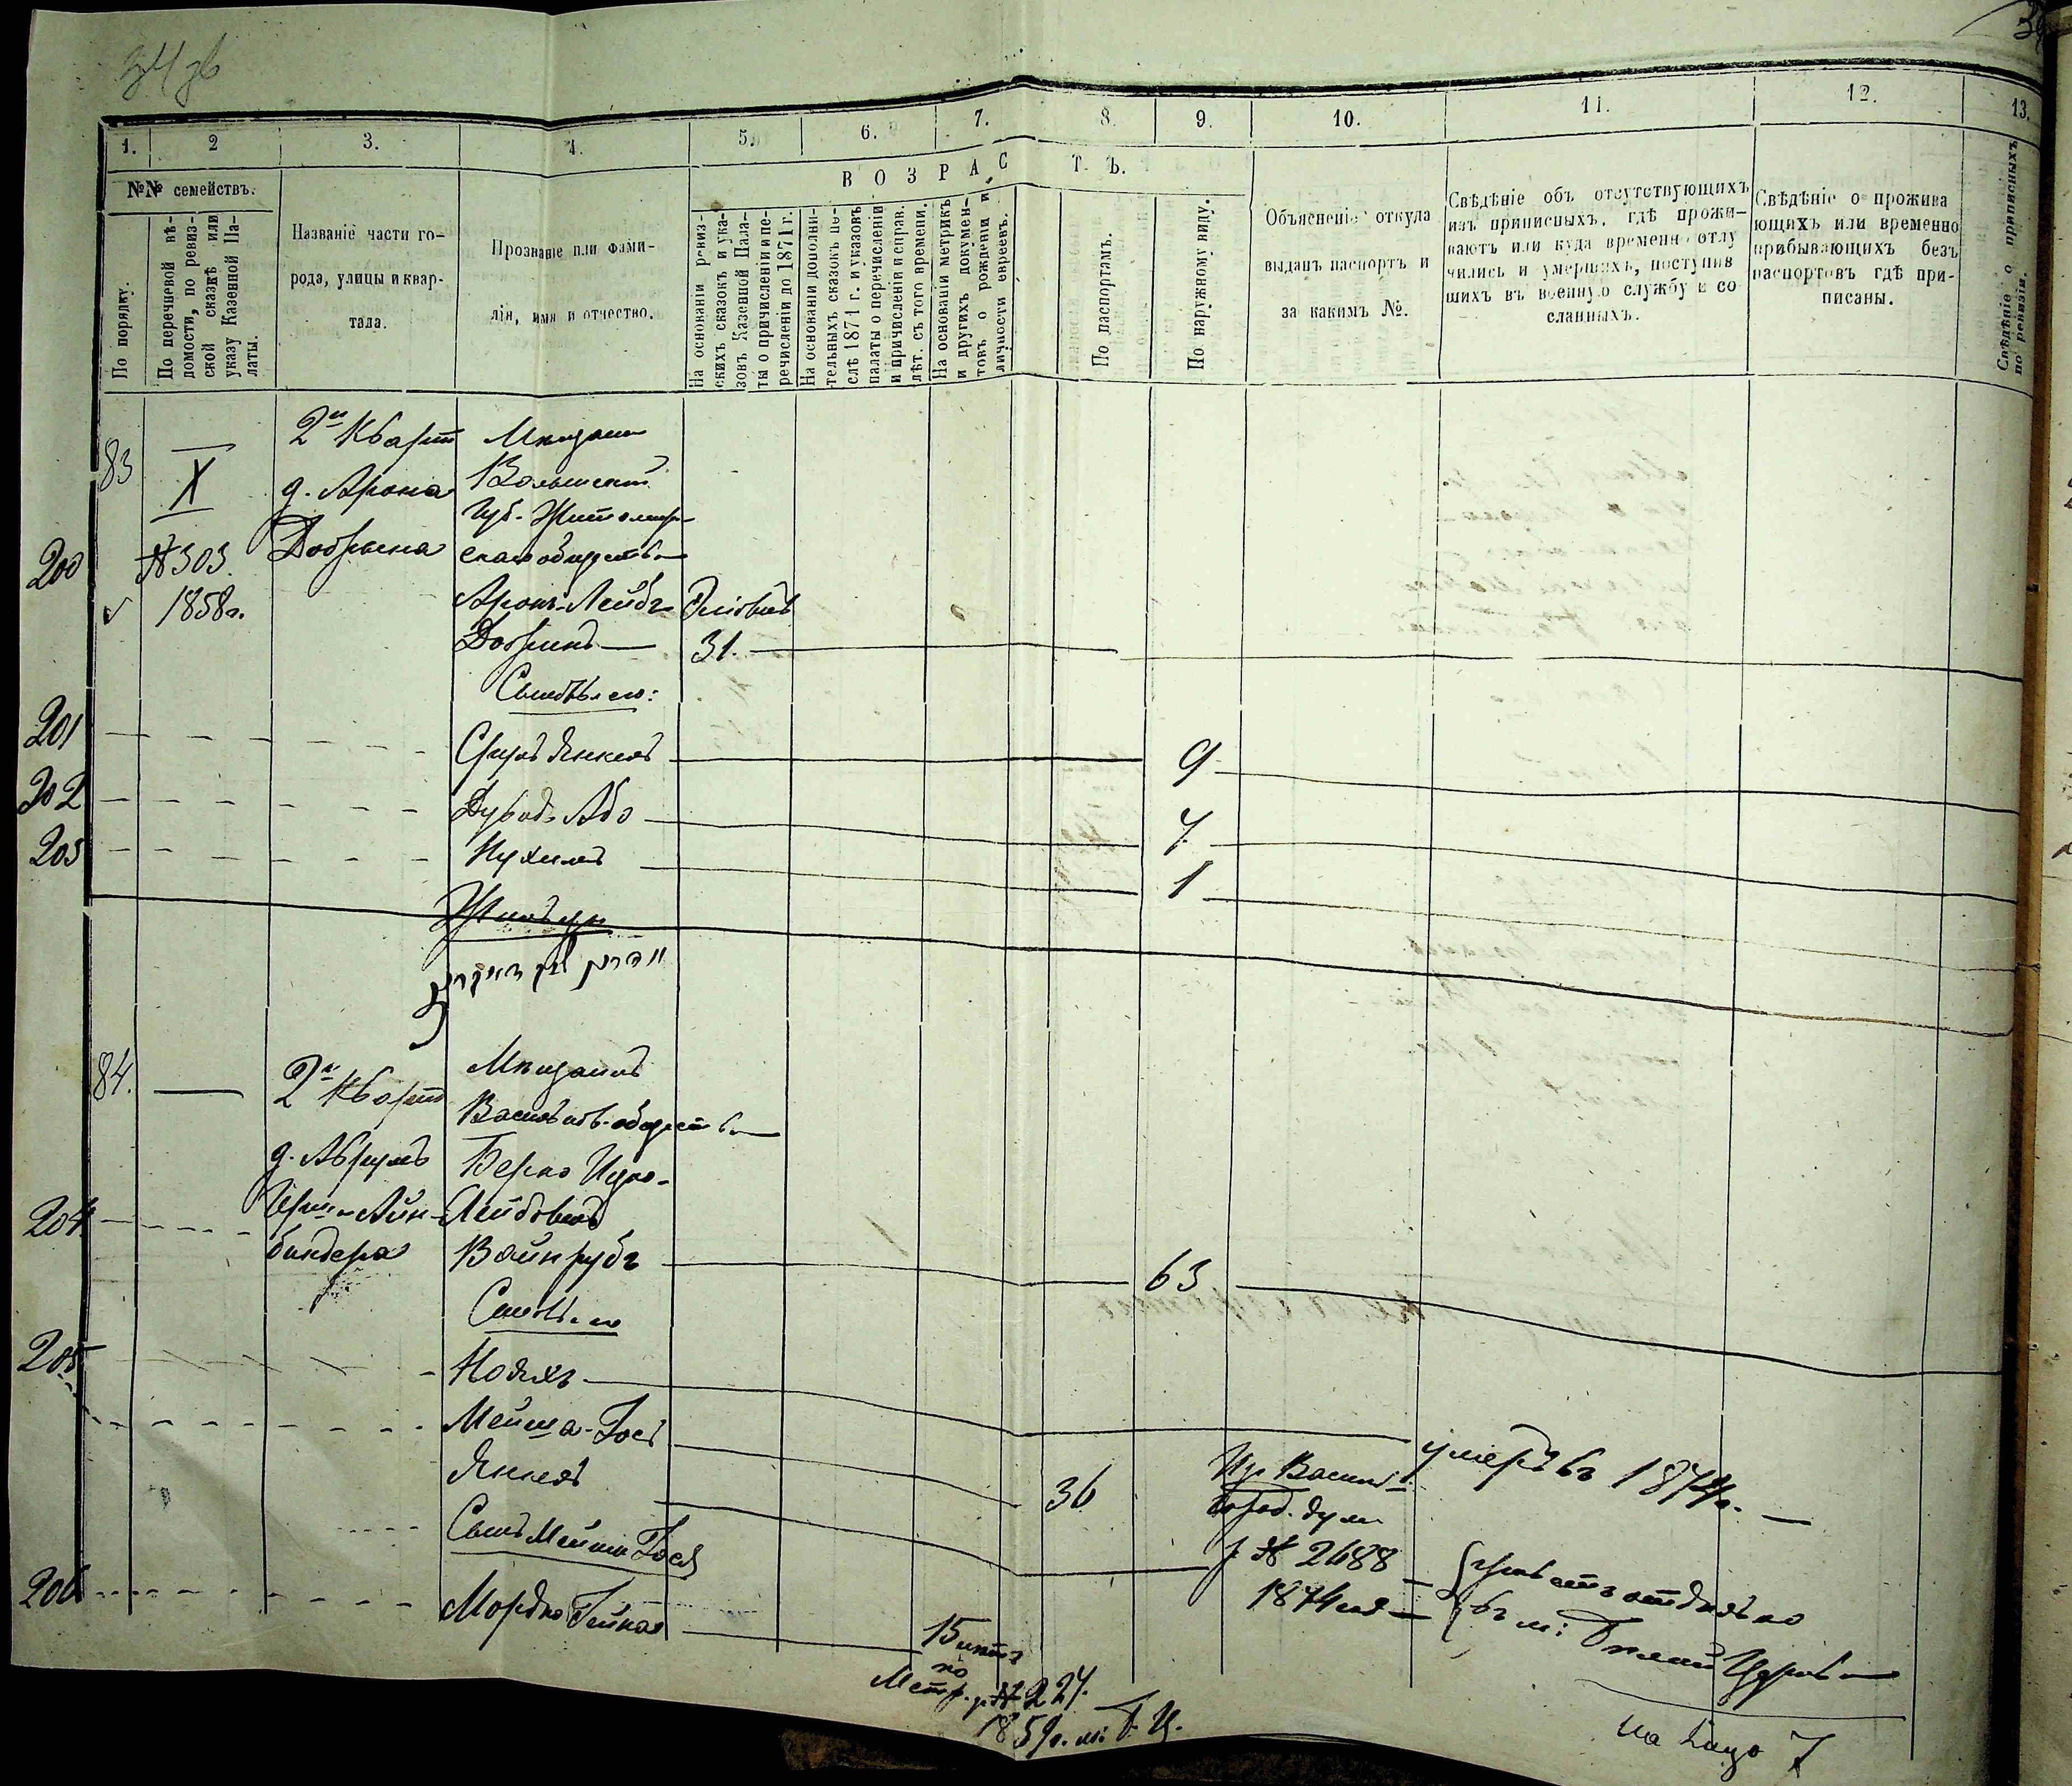 1. 2 3. 4. 5. 6. 7. 8. 9. 10. 11. 12. 13.
№№ семействъ.
По порядку.
По перечневой вѣ-
домости, по ревиз-
ской сказкѣ или
указу Казенной Па-
латы.
Названіе части го-
рода, улицы и квар-
тала.
Прозваніе или фами-
лія, имя и отчество.
ВОЗРАСТЪ.
На основаніи ревиз-
скихъ сказокъ и ука-
зовъ Казенной Пала-
ты о причисленіи и пе-
речисленіи до 1871 г.
На основаніи дополни-
тельныхъ сказокъ по-
слѣ 1871 г. и указовъ
палаты о перечисленіи
и причисленіи и справ.
лѣт. съ того времени.
На основаніи метрикъ
и другихъ докумен-
товъ о рожденіи и
личности евреевъ.
По паспортамъ.
По наружному виду.
Объясненіе откуда
выданъ паспортъ и
за какимъ №.
Свѣдѣніе объ отсутствующихъ
изъ приписныхъ, гдѣ прожи-
ваютъ или куда временно отлу
чились и умершихъ, поступив
шихъ въ военную службу и со
сланныхъ.
Свѣдѣніе о прожива
ющихъ или временно
прибывающихъ безъ
паспортовъ гдѣ при-
писаны.
Свѣдѣніе о приписныхъ
по ревизіи.
83
X
№ 303
1858г.
2й Кварт
д. Арона
Добрина
Мѣщане
Волынской
Губ. Житомир-
скаго общества
200
Аронъ-Лейбъ Эліовичъ
Добринъ 31.
Сыновья его:
201 Сруль Янкель 9
202 Дувидъ Або 7
203 Нухимъ 1
84.
2й Кварт
д. Аврумъ
Герш. Айн-
биндера
Мѣщанинъ
Васильков. общества
Берко Ицко-
204 Лейбовичъ
Вайнрубъ 63
Сыновья его
205 Мейша-Іось 36
Янкель
Сынъ Мейши Іося
206 Мордко
умеръ въ 1874г.
Из Васильк.
город. думы
№ 2688
1874 года
въ м: Бѣлой Церкви
15 лѣтъ
по
Метр. № 224.
1859г. м. Б. Ц.
на лицо 7